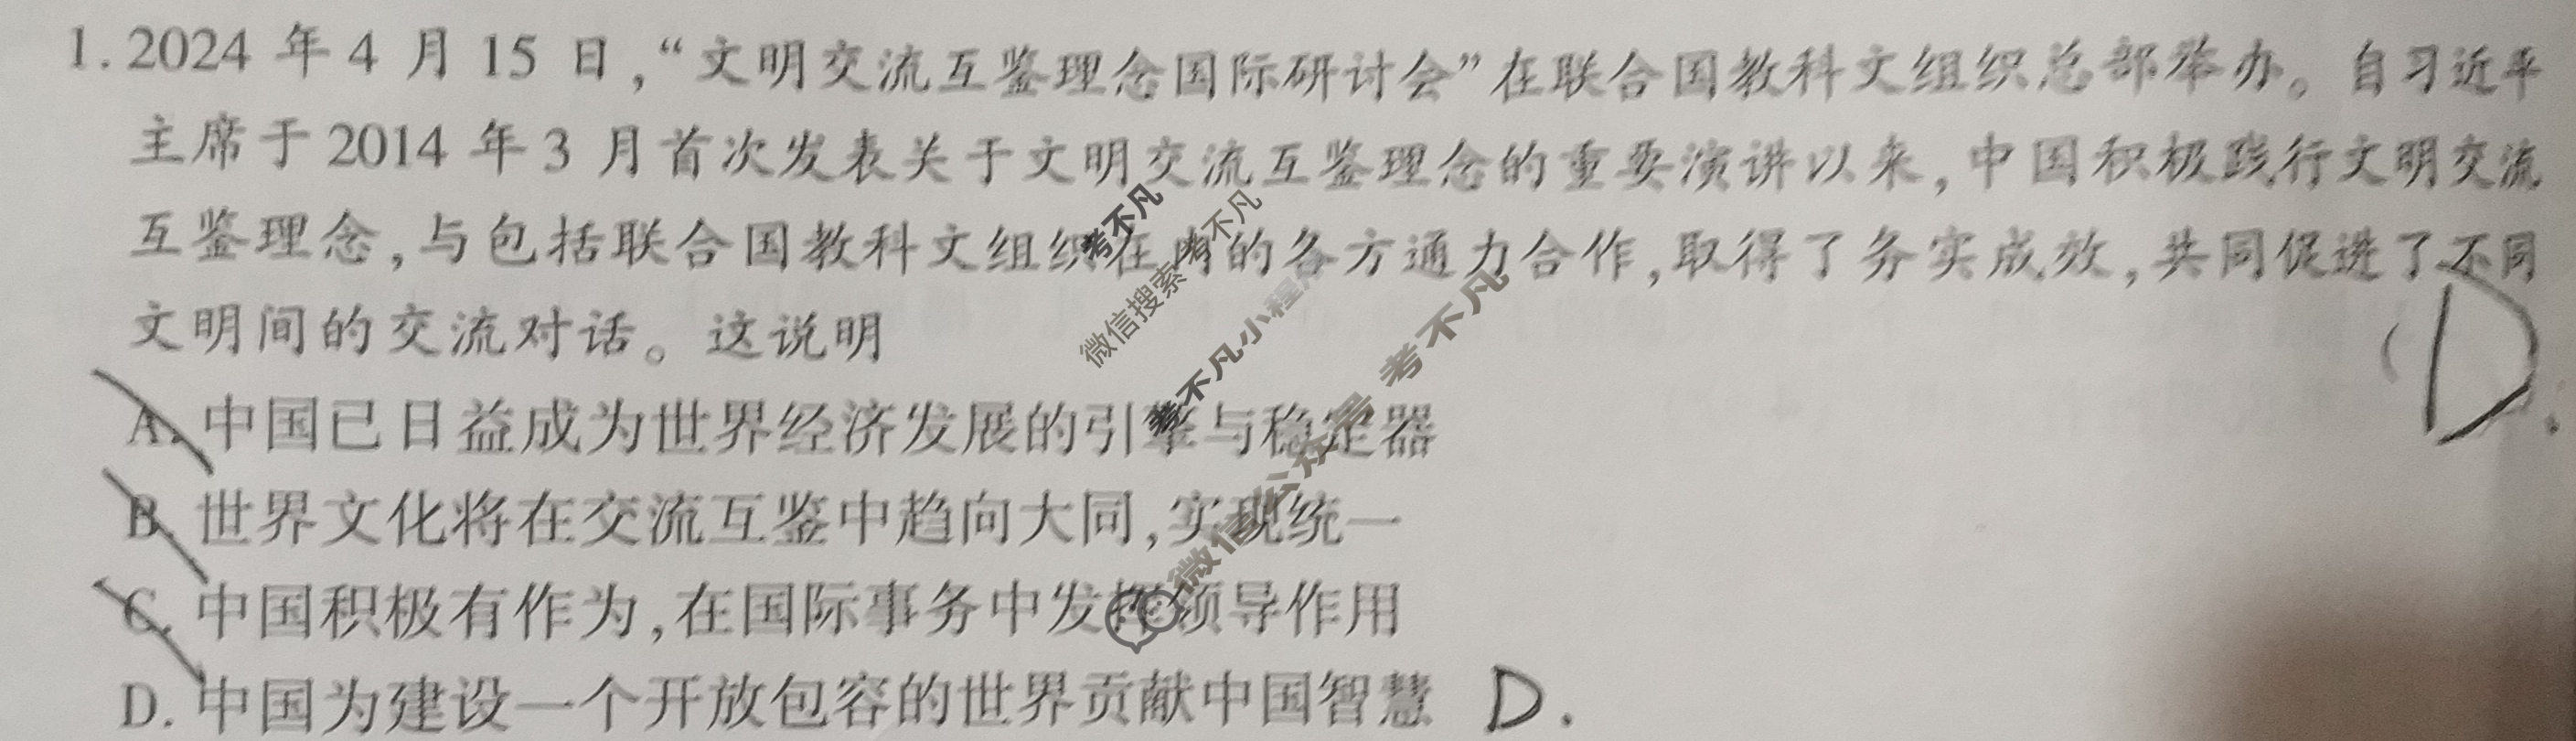 1. 2024 年 4 月 15 日,“文明交流互鉴理念国际研讨会”在联合国教科文组织总部举办。自习近平
主席于 2014 年 3 月首次发表关于文明交流互鉴理念的重要演讲以来,中国积极践行文明交流
互鉴理念,与包括联合国教科文组织在内的各方通力合作,取得了务实成效,共同促进了不同
文明间的交流对话。这说明
(D.
A. 中国已日益成为世界经济发展的引擎与稳定器
B. 世界文化将在交流互鉴中趋向大同,实现统一
C. 中国积极有作为,在国际事务中发挥领导作用
D. 中国为建设一个开放包容的世界贡献中国智慧 D.
考不凡
微信搜索 考不凡
考不凡小程序
微信公众号 考不凡